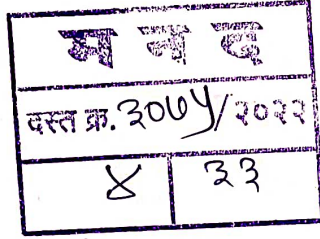 म न द
दस्त क्र. ३०७५/२०२२
४ ३३